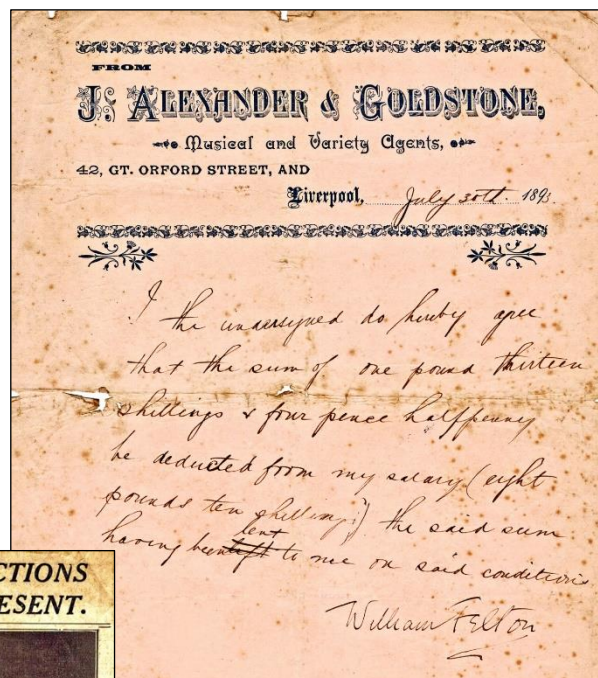 FROM
J. ALEXANDER & GOLDSTONE,
Musical and Variety Agents,
42, GT. ORFORD STREET, AND
Liverpool, July 30th. 1893
I the undersigned do hereby agree
that the sum of one pound thirteen
shillings & four pence halfpenny
be deducted from my salary (eight
pounds ten shillings) the said sum
lent
having been to me on said conditions
William Felton
CTIONS
ESENT.